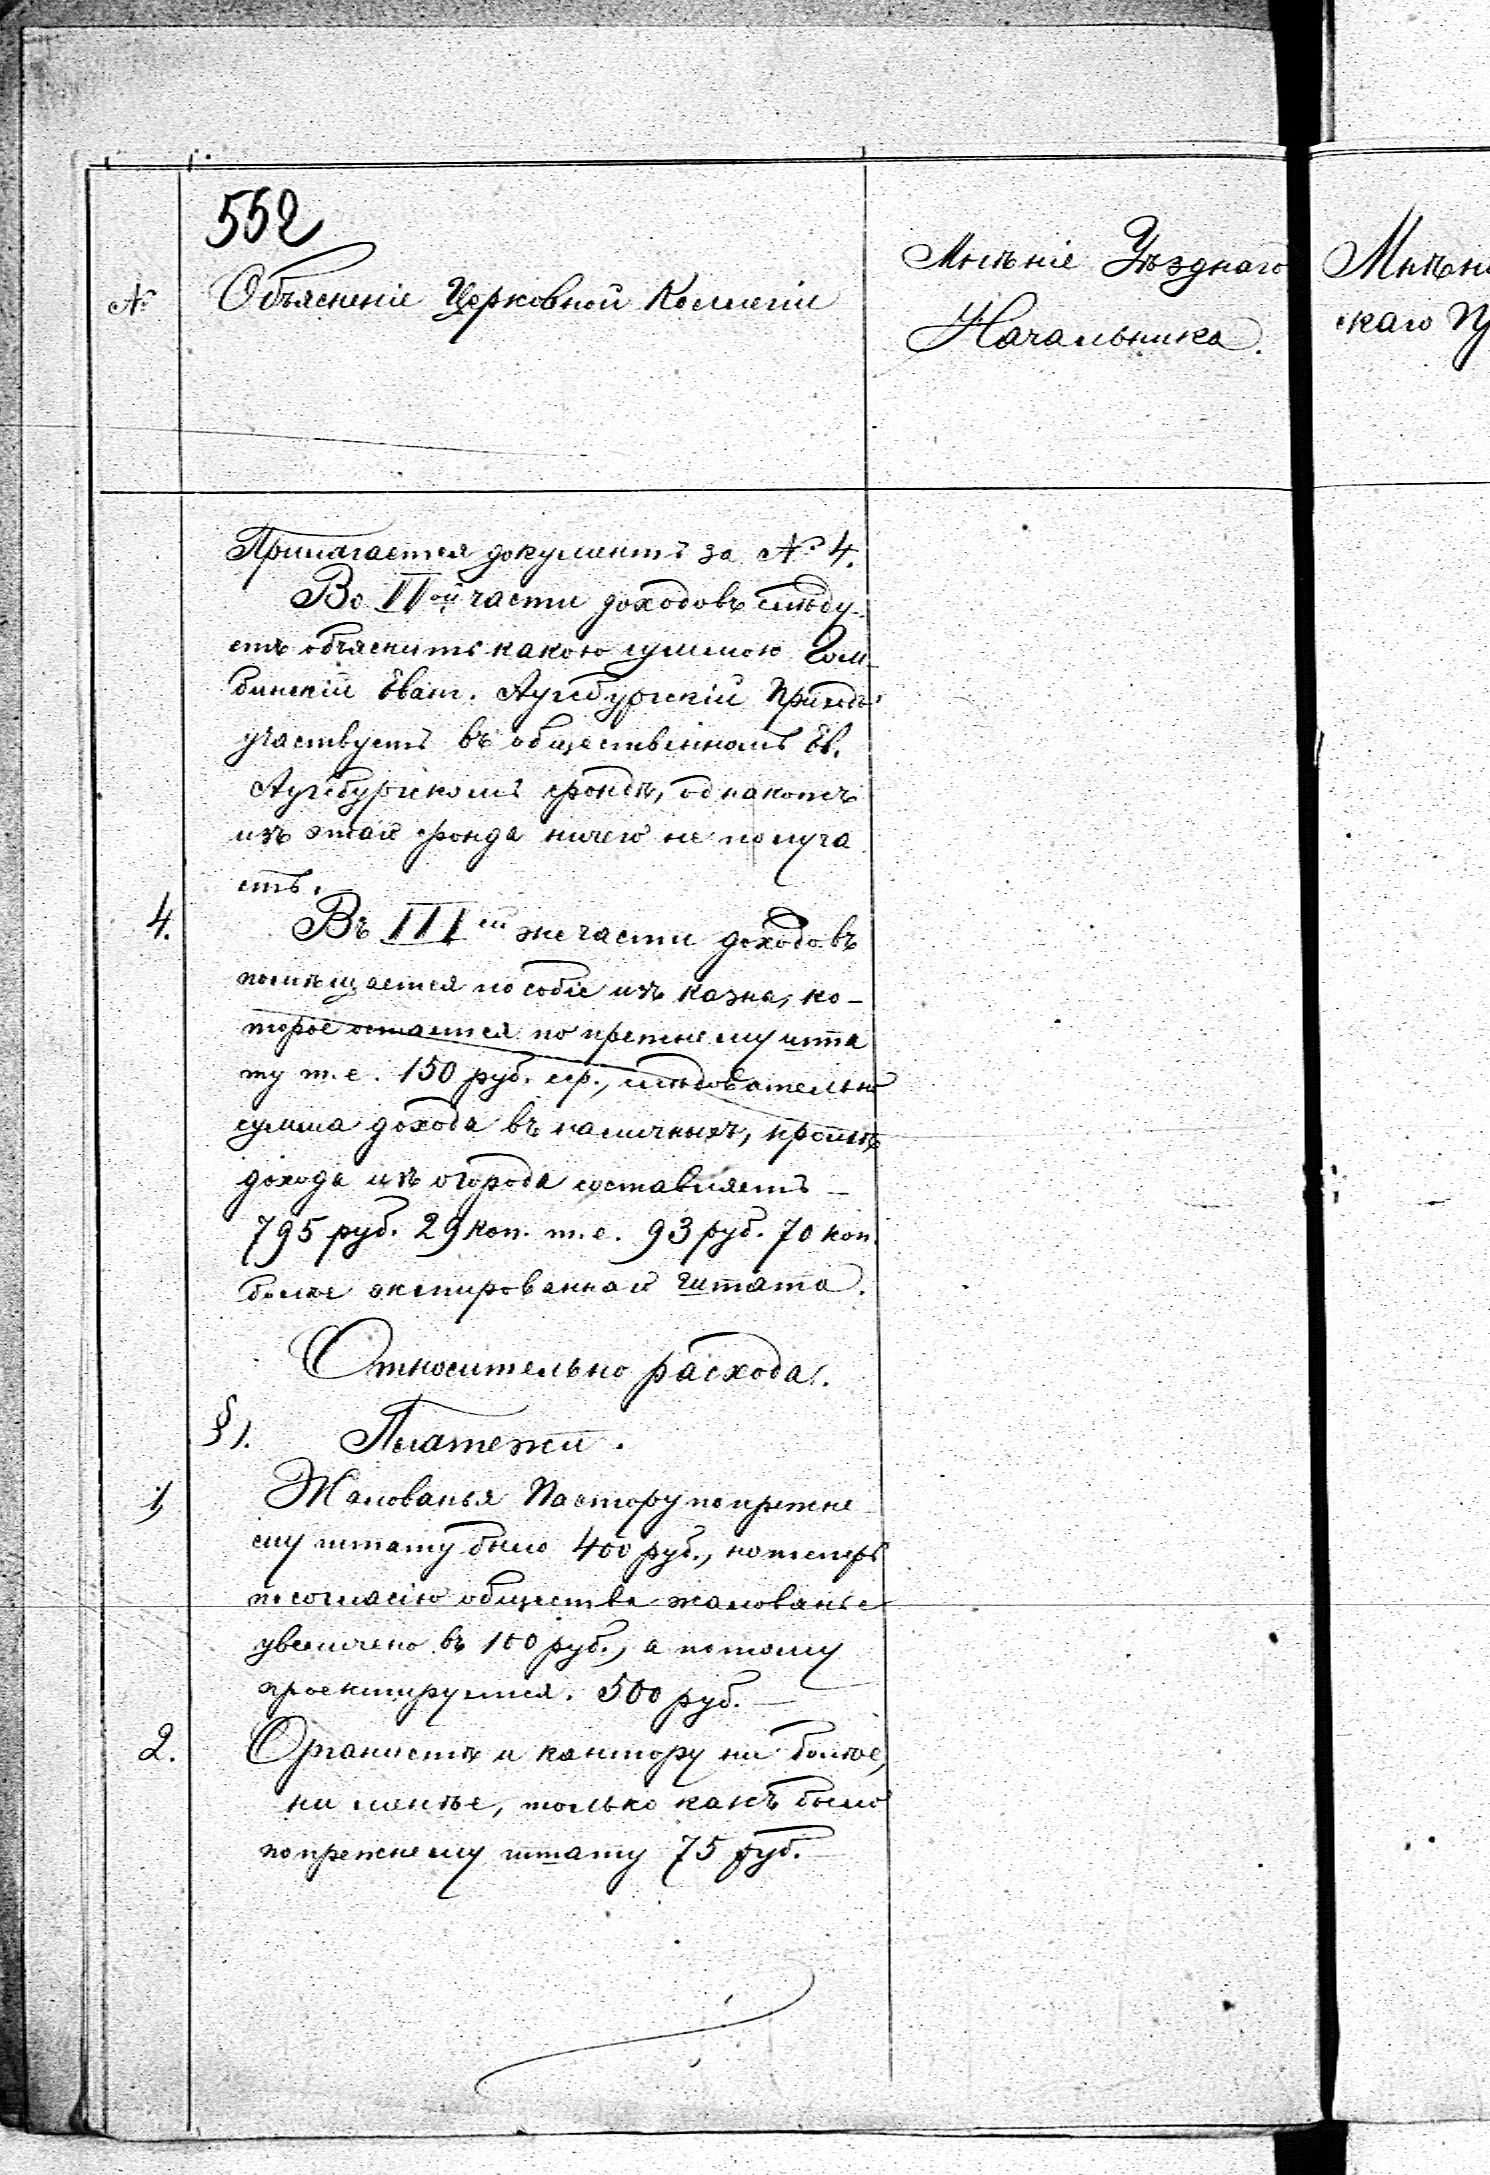 552
№
Объясненіе Церковной Коллегіи
Мнѣніе Уѣзднаго
Начальника.
Мнѣні
скаго
Прилагается документъ за № 4.
Во IIой части доходовъ слѣду-
етъ объяснить какою суммою Гом-
бинскій Еванг. Аугсбургскій Приходъ
участвуетъ въ общественномъ Ев.
Аугсбургскомъ фондѣ, однакожъ
изъ этаго фонда ничего не получа
етъ.
4.
Въ IIIей же части доходовъ
помѣщается пособіе изъ казны, ко-
торое остается по прежнему шта
ту т. е. 150 руб. сер., слѣдовательно
сумма дохода въ наличныхъ, кромѣ
дохода изъ огорода составляетъ –
795 руб. 29 коп. т. е. 93 руб. 70 коп.
более экспированнаго штата.
Относительно расхода.
§ 1. Платежи.
1,
Жалованья Пастору по прежне
му штату было 400 руб., но теперь
по согласію общества жалованье
увеличено въ 100 руб., а потому
проектируется. 500 руб. –
2.
Органистѣ и кантору ни болѣе,
ни менѣе, только какъ было
по прежнему штату 75 руб. –